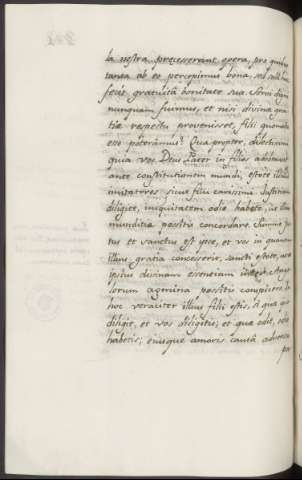 la nostra præcesserant opera, pro quibus
tanta ab eo percipimus bona, sed sola hæc
fecit gratuita bonitate sua. Servi digni
nunquam fuimus, et nisi divinæ gra-
tiæ respectu provenisset, filii quomodo
esse poteramus? Quapropter, dilectissimi
quia vos Deus Pater in filios adoptavit
ante constitutionem mundi, estote illius
imitatores sicut filii carissimi. Justitiam
diligite, iniquitatem odio habete, ut illius
munditiæ possitis concordare. Summe jus-
tus et sanctus est ipse, et vos in quantum
illius gratia concesserit, sancti estote, ut
ipsius divinam essentiam inter Ange-
lorum agmina possitis conspicere. In
hoc veraciter illius filii estis, si quæ ipse
diligit, et vos diligitis; et quæ odit, odio
habetis; ejusque amoris causa adversa